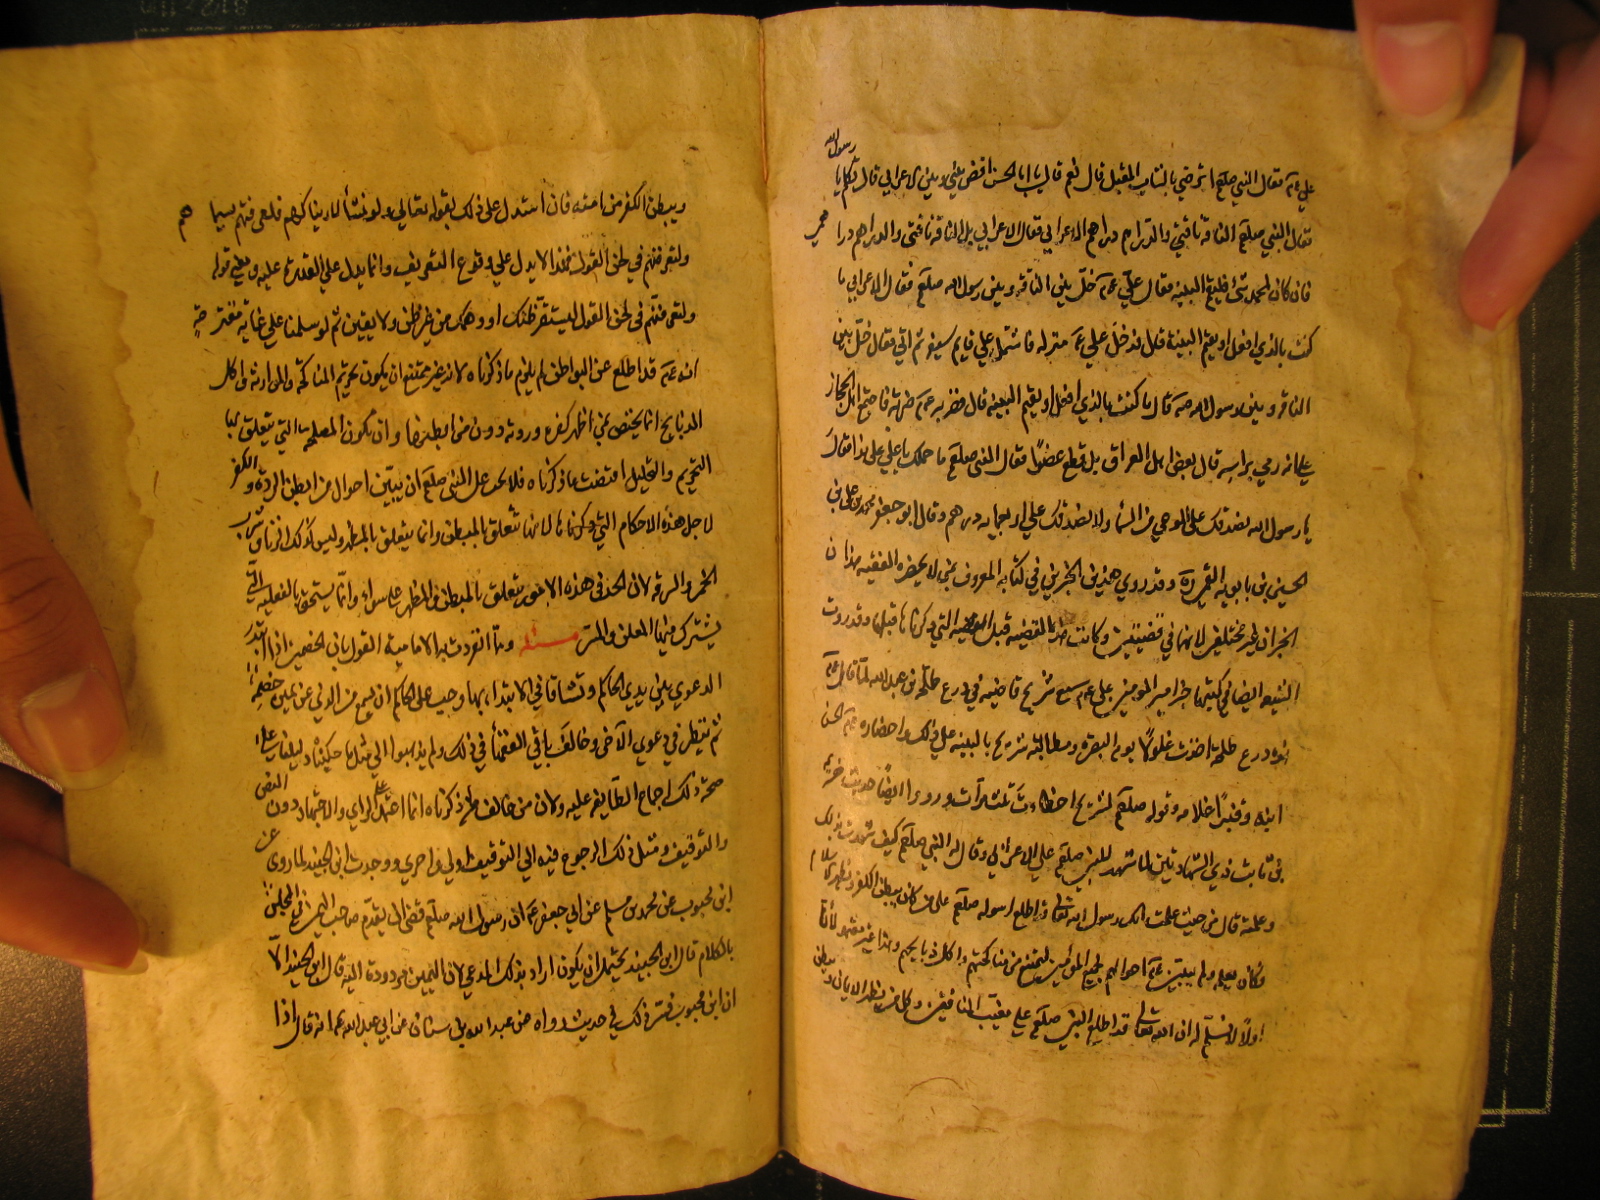 علي عم فقال النبي صلعم اترضي بالشاب المقبل قال نعم قال يا ابا الحسن اقض بيني وبين الاعرابي قال تكلم يا رسول الله
فقال النبي صلعم الناقة ناقتي والدراهم دراهم الاعرابي فقال الاعرابي بل الناقة ناقتي والدراهم دراهمي
فان كان لمحمد شي فليقم البينه فقال علي عم خل بين الناقة وبين رسول الله صلعم فقال الاعرابي ما
كنت بالذي افعل او يقيم البينة قال فدخل علي عم منزله فاشتمل علي قايم سيفه ثم اتي فقال خل بين
الناقة وبين رسول الله صه قال ما كنت بالذي افعل او يقيم البينه قال فضربه عم ضربة فاجتمع اهل الحجاز
علي انه رمي براسه قال بعض اهل العراق بل قطع عضوا فقال النبي صلعم ما حملك يا علي علي هذا فقال
يا رسول الله نصدقك علي الوحي من السماء ولا نصدقك علي اربعمايه درهم وقال ابو جعفر محمد بن علي بن
الحسين بن بابويه القمي ره وقد روي هذين الخبرين في كتابه المعروف بمن لا يحضره الفقيه هذان
الخبران غير مختلفين لانهما في قضيتين وكانت هذه القضيه قبل القضيه التي ذكرناها قبلها وقد روت
الشيعة ايضا في كتبها خبر امير المومنين علي عم مع شريح قاضيه في درع طلحة بن عبد الله لما قال عم
هذه درع طلحة اخذت غلولا يوم البصره ومطالبته شريح بالبينه علي ذلك واحضاره عم الحسن
ابنه وقنبرا غلامه وقوله صلعم لشريح اخطات ثلث مرات ورووا ايضا حديث خزيمه
بن ثابت ذي الشهادتين لما شهد للنبي صلعم علي الاعرابي وقال له النبي صلعم كيف شهدت بذلك
وعلمته قال من حيث علمت انك رسول الله تعالي قد اطلع رسوله صلعم علي من كان يبطن الكفر ويظهر الاسلام
وكان يعلمه ولم يبين عم احوالهم لجميع المومنين ليمتنع من مناكحتهم واكل ذبايحهم وهذا غير معتمد لانا
اولا لا نسلم له ان الله تعالي قد اطلع النبي صلعم علي مغيب المنافقين وكل من يظهر الايمان ويبطن
ويبطن الكفر من امته فان استدل علي ذلك بقوله تعالي ولو نشأ لاريناكهم فلعرفتهم بسيماهم
ولتعرفنهم في لحن القول فهذا لا يدل علي وقوع التعريف وانما يدل علي القدرة عليه ومعني قوله
ولتعرفنهم في لحن القول ليستقر ظنك او وهمك من غير ظن ولا يقين ثم لو سلمنا علي غاية مقترحه
انه عم قد اطلع عن البواطن لم يلزم ما ذكرناه لانه غير ممتنع ان يكون تحريم المناكحة والموارثة واكل
الذبايح انما يختص بمن اظهر كفره وردته دون من ابطنها وان تكون المصلحة التي يتعلق بها
التحريم والتحليل اقتضت ما ذكرناه فلا يجب علي النبي صلعم ان يبين احوال من ابطن الردة والكفر
لاجل هذه الاحكام التي ذكرناها لانها تتعلق بالمبطن وانما يتعلق بالمظهر وليس كذلك الزنا وشرب
الخمر والسرقه لان الحد في هذه الامور يتعلق بالمبطن والمظهر علي سواء وانما يستحق بالفعليه التي
يشترك فيها المعلن والمسر مسئله ومما انفردت به الامامية القول بان الخصمين اذا ابتدر
الدعوي بين يدي الحاكم وتشاقا في الابتداء بها وجب علي الحاكم ان يسمع من الذي عن يمين خصمه
ثم ينظر في دعوي الآخر وخالف باقي الفقهأ في ذلك ولم يذهبوا الي مثل ما حكيناه دليلنا علي
صحة ذلك اجماع الطايفه عليه ولان من خالف ما ذكرناه انما اعتمد علي الراي والاجتهاد دون النص
والتوقيف ومثل ذلك الرجوع فيه الي التوقيف اولي واحري ووجدت ابن الجنيد لما روي عن
ابن محبوب عن محمد بن مسلم عن ابي جعفر عم ان رسول الله صلعم قضي ان يقدم صاحب اليمين في المجلس
بالكلام قال ابن الجنيد يحتمل ان يكون اراد بذلك المدعي لان اليمين مردودة اليه قال ابن الجنيد الا
ان ابن محبوب فسر ذلك في حديث رواه عن عبد الله بن سنان عن ابي عبد الله عم انه قال اذا